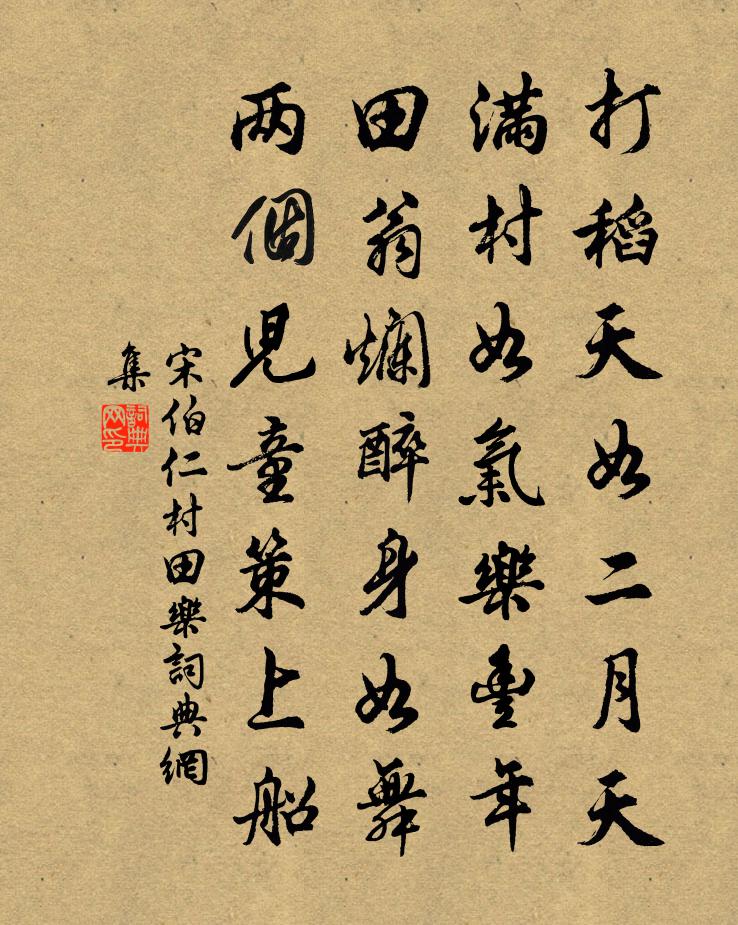 打稻天如二月天
滿村如氣樂豐年
田翁爛醉身如舞
两個兒童策上船
宋伯仁村田樂詞典網
集
詞典
网印